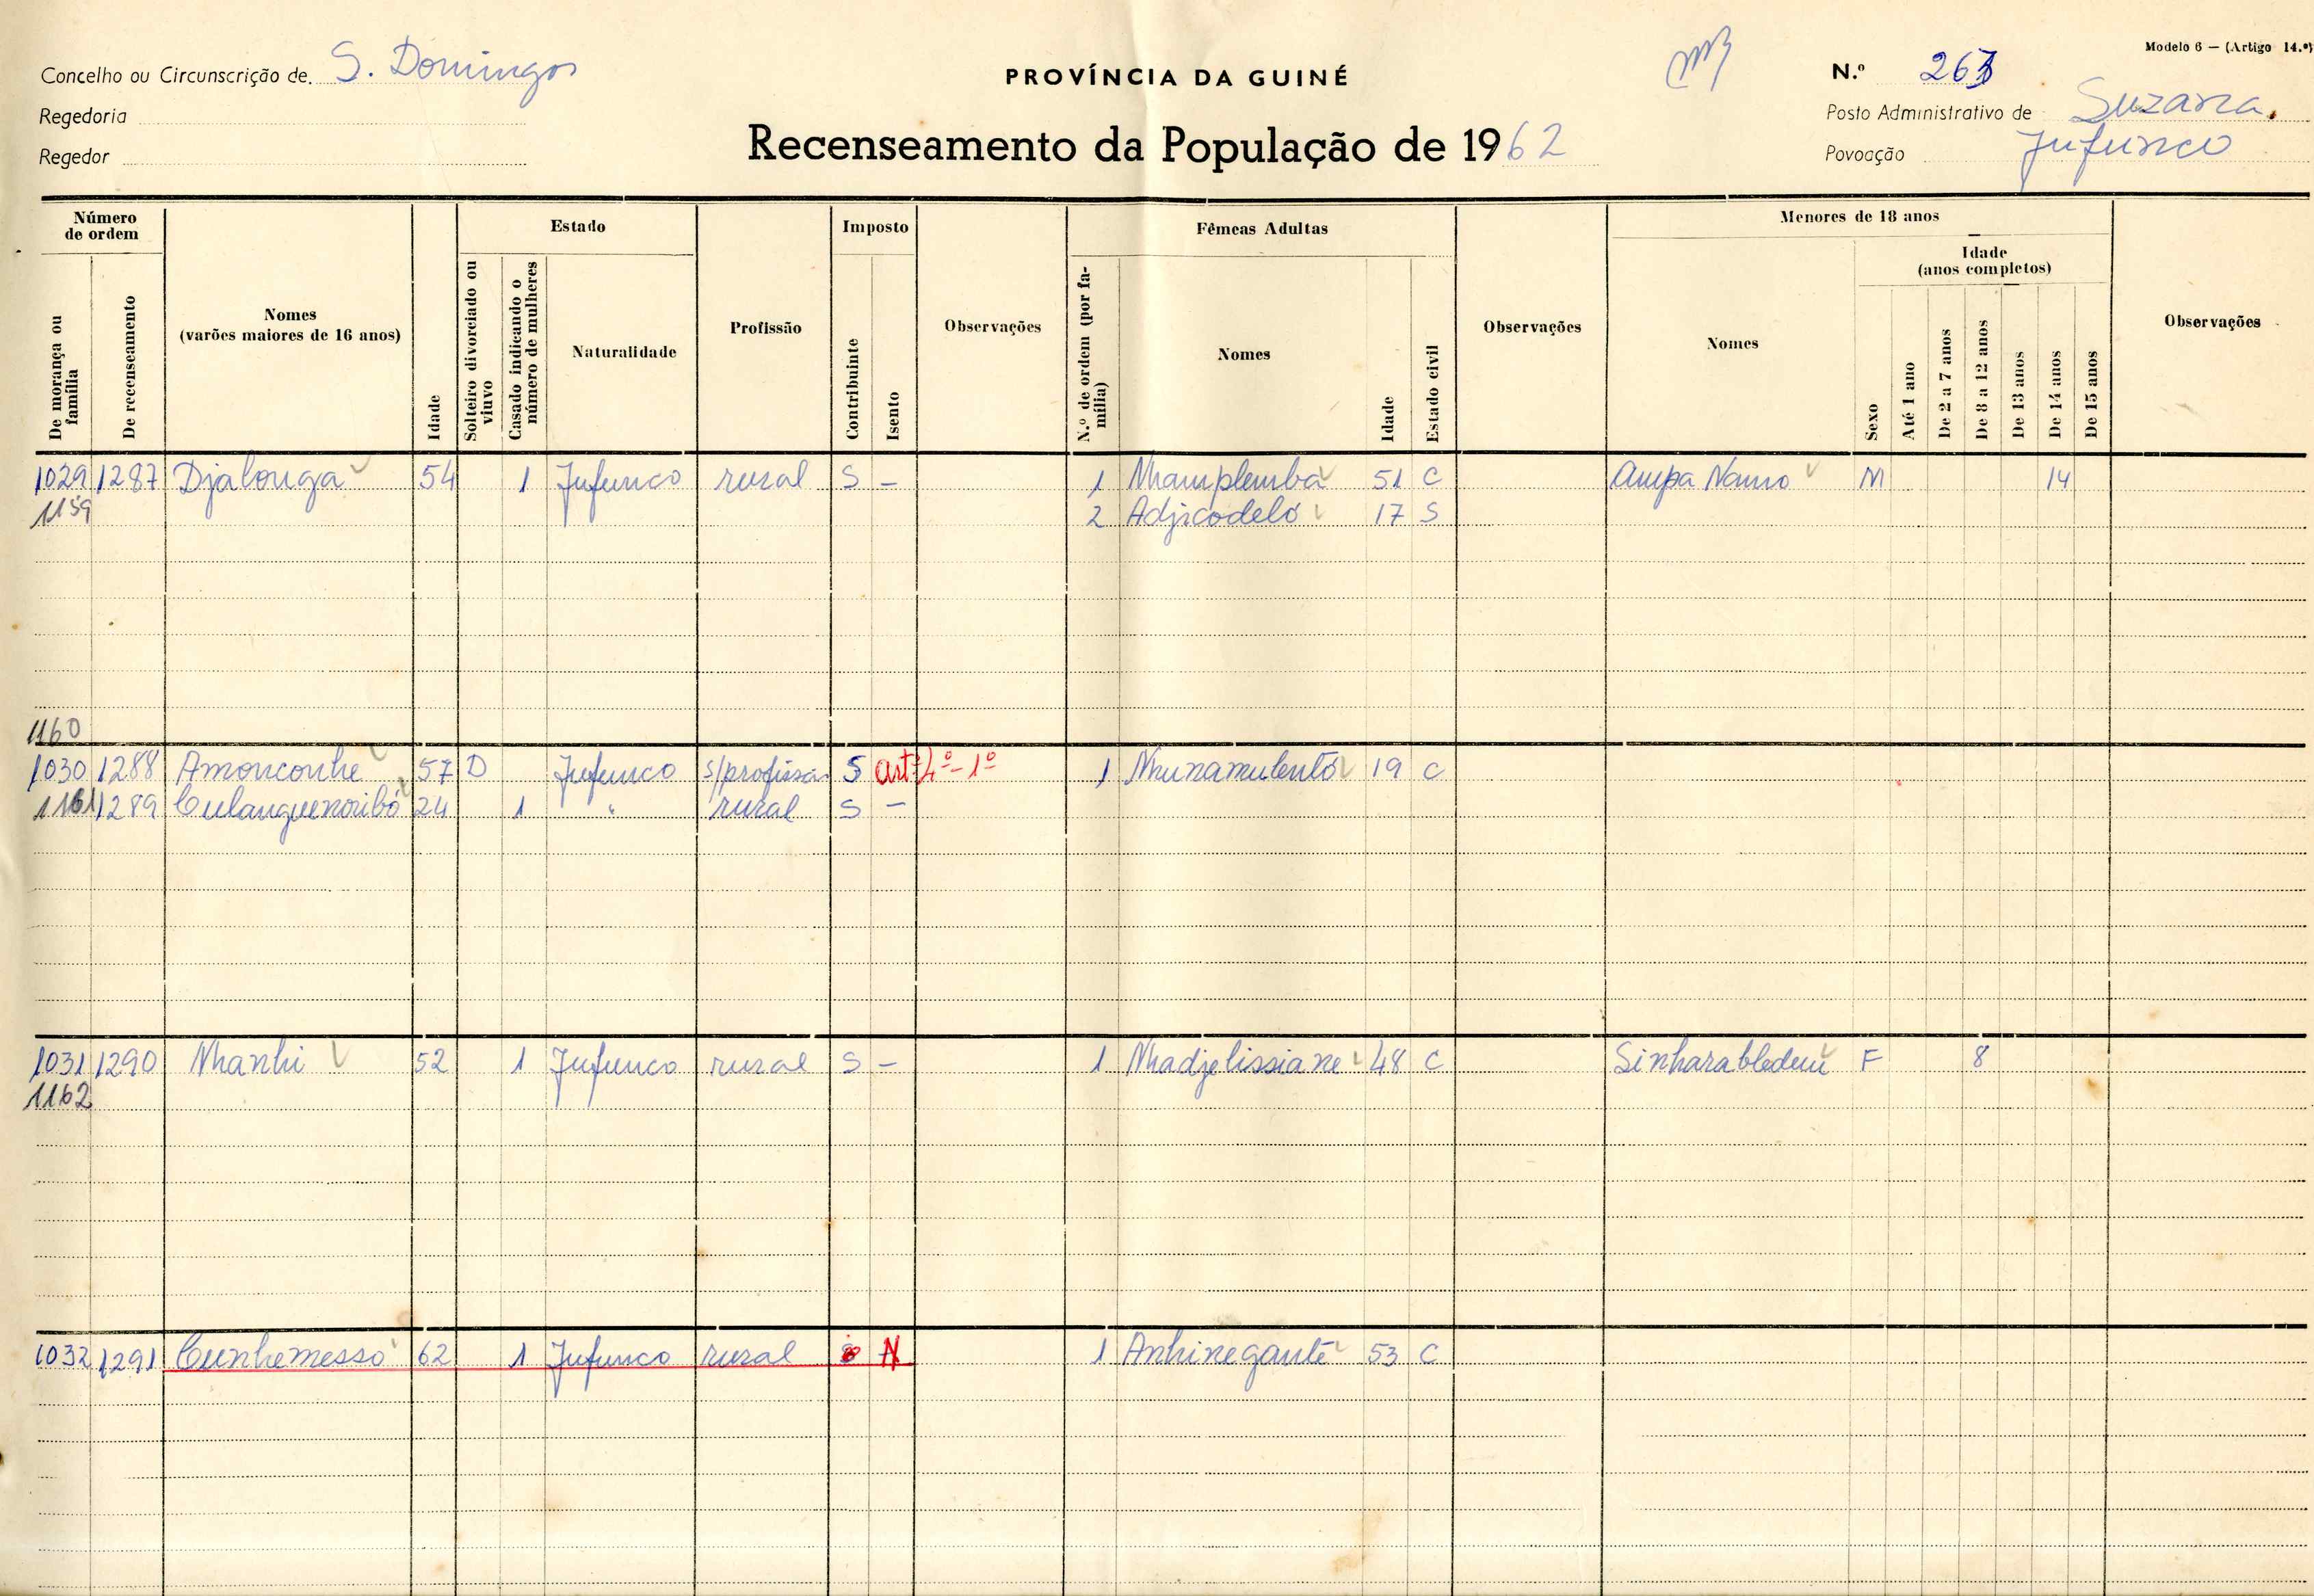 Modelo 6 — (Artigo 14.º)
Concelho ou Circunscrição de S. Domingos
PROVÍNCIA DA GUINÉ
N.º 263
Regedoria
Posto Administrativo de Suzana
Regedor
Recenseamento da População de 1962
Povoação Jufunco
Número de ordem
De morança ou família
De recenseamento
Nomes (varões maiores de 16 anos)
Idade
Estado
Solteiro divorciado ou viuvo
Casado indicando o número de mulheres
Naturalidade
Profissão
Imposto
Contribuinte
Isento
Observações
Fêmeas Adultas
N.º de ordem (por família)
Nomes
Idade
Estado civil
Observações
Menores de 18 anos
Nomes
Sexo
Idade (anos completos)
Até 1 ano
De 2 a 7 anos
De 8 a 12 anos
De 13 anos
De 14 anos
De 15 anos
Observações
1029 1287 Djalouga 54 1 Jufunco rural S — 1 Nhamplemba 51 C Ampa Namo M 14
1159 2 Adjicodeló 17 S
1160
1030 1288 Amonconhe 57 D Jufunco s/profissão S artº 4º-1º 1 Nhunamulentó 19 C
1161 1289 Culanguenoribó 24 1 " rural S —
1031 1290 Nhanhi 52 1 Jufunco rural S — 1 Nhadjelissiane 48 C Sinharabledeu F 8
1162
1032 1291 Cunhemesso 62 1 Jufunco rural N 1 Anhinegauté 53 C